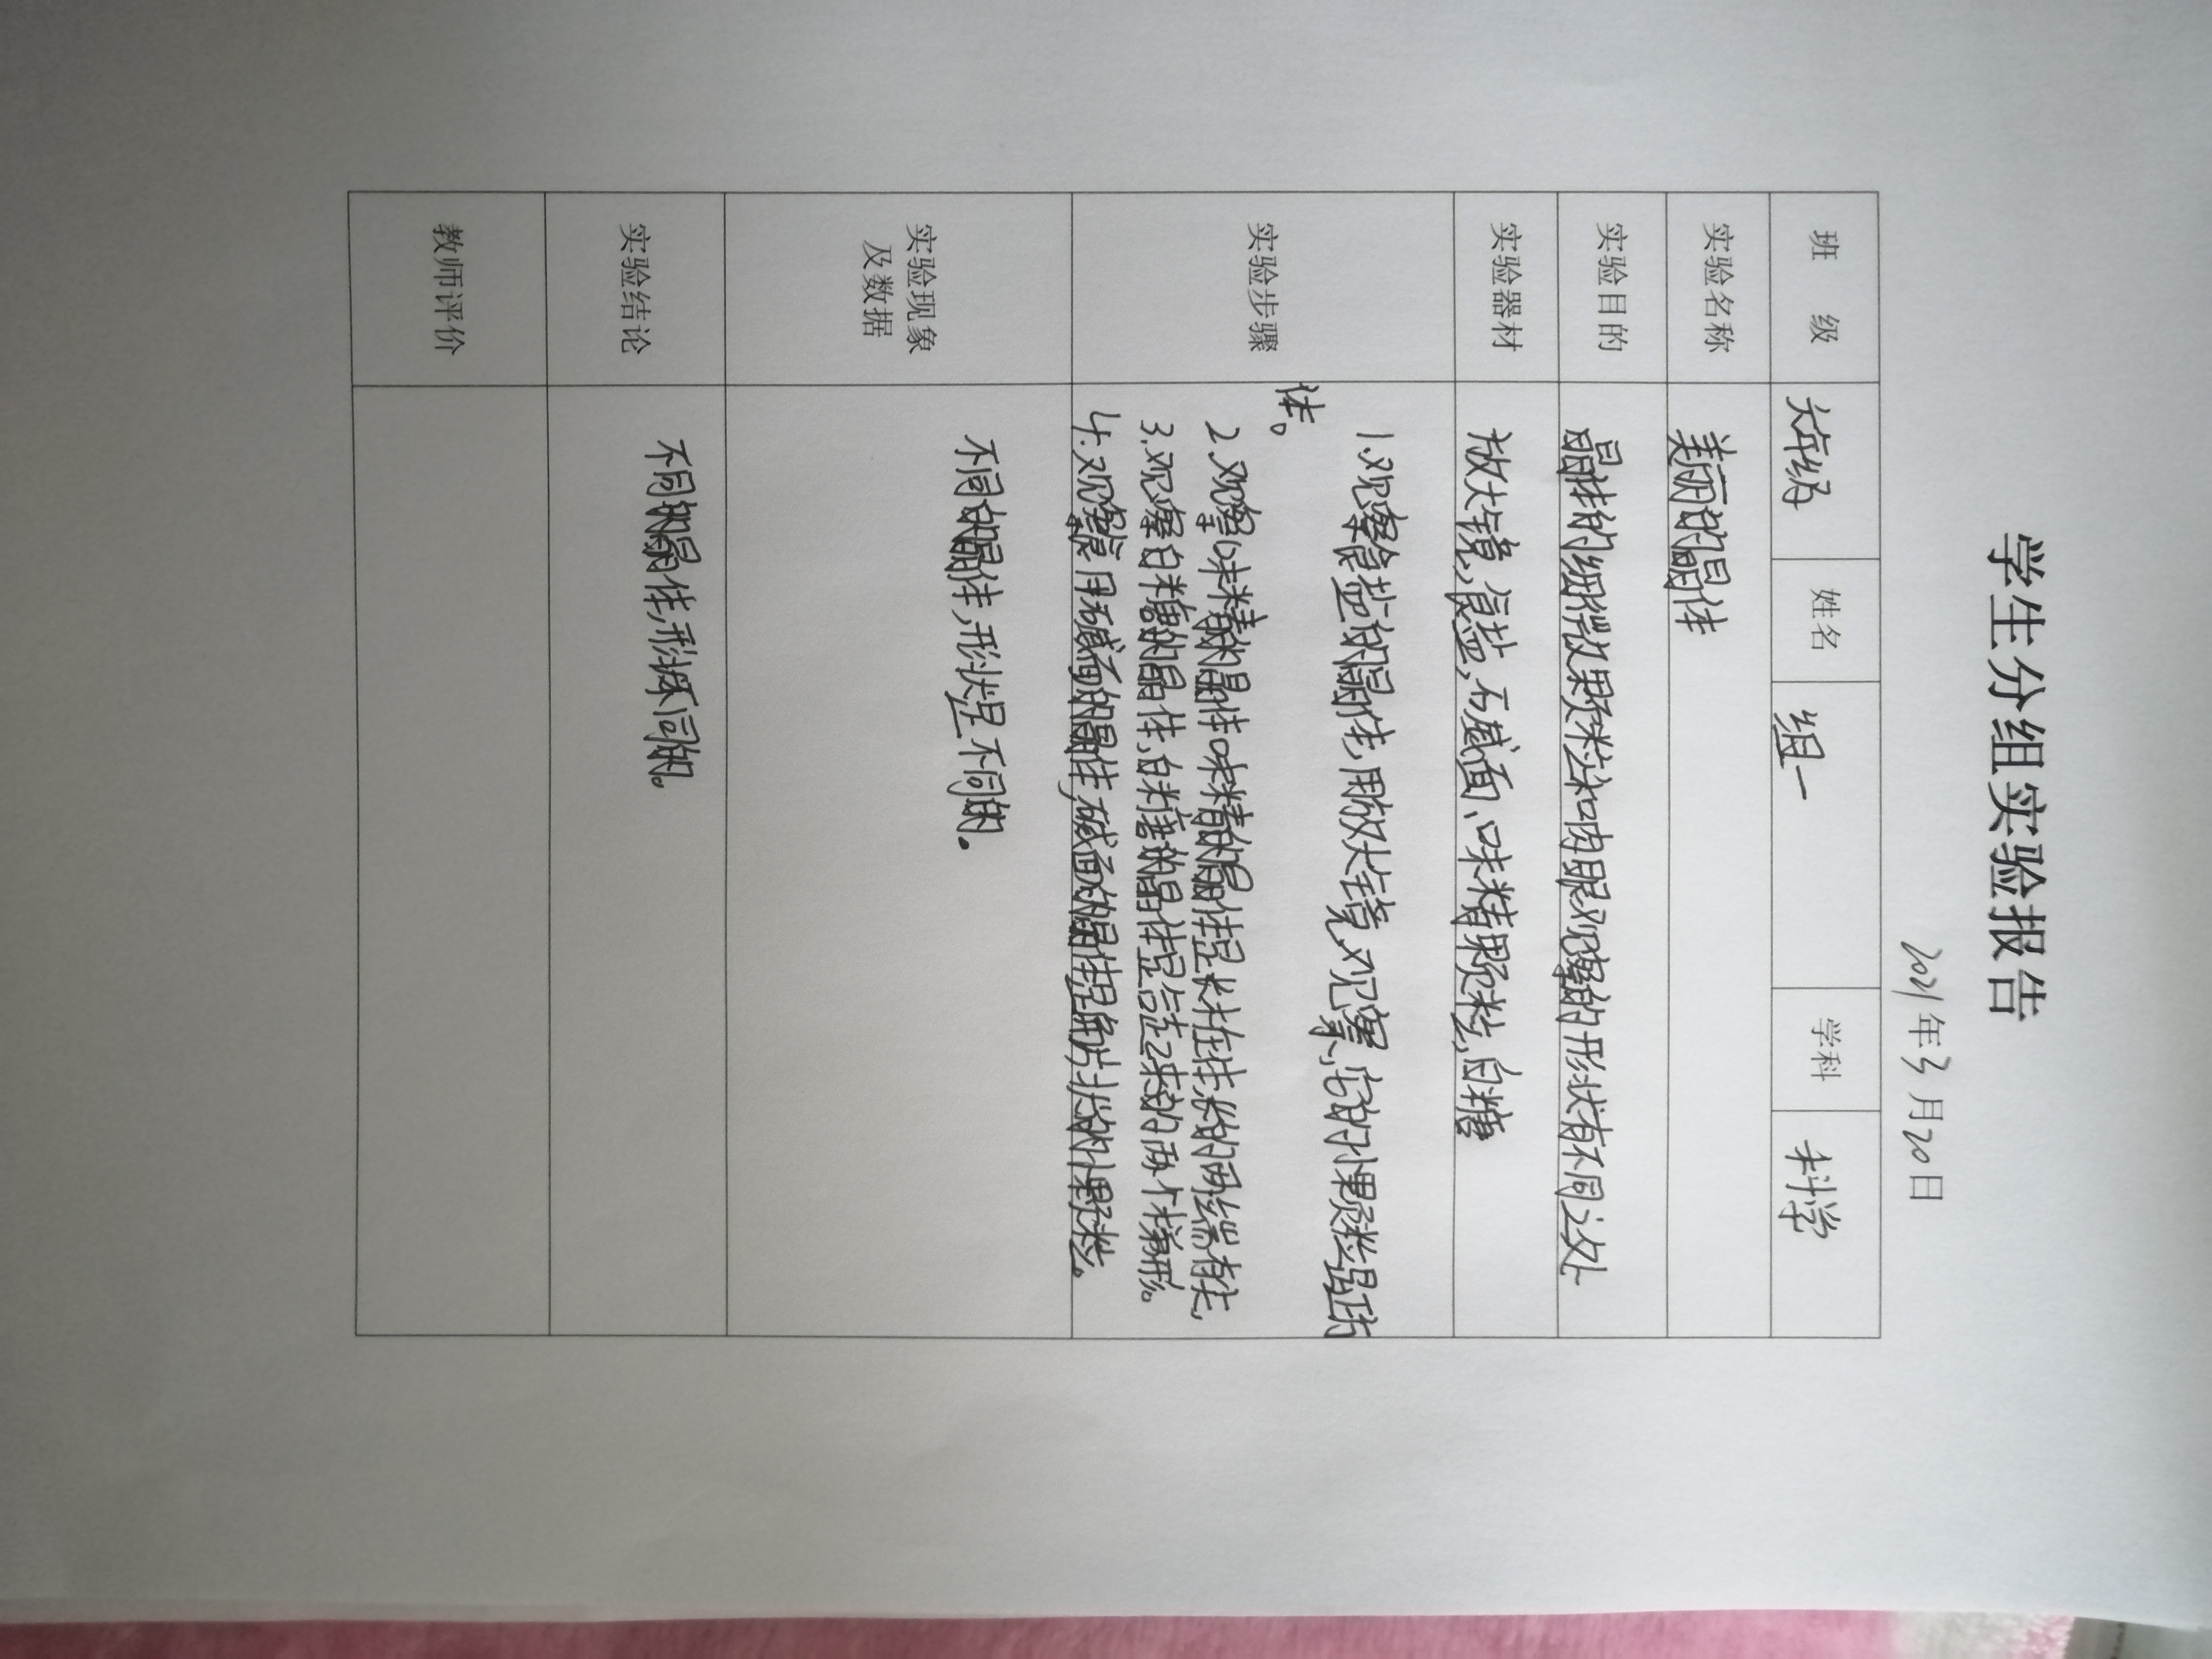 学生分组实验报告
2021年3月20日
班 级 六年级 姓名 组一 学科 科学
实验名称 美丽的晶体
实验目的 晶体的细微果颗粒和肉眼观察的形状有不同之处
实验器材 放大镜,食盐,石碱面、味精颗粒,白糖
实验步骤 1.观察食盐的晶体,用放大镜观察,它的小颗粒呈正方
体。
2.观察味精的晶体味精的晶体呈长柱体,的两端有尖,
3.观察白糖的晶体,白糖的晶体呈 的两个梯形。
4.观察食用碱面的晶体,碱面的晶体呈 片状的小颗粒。
实验现象
及数据
不同的晶体,形状是不同的.
实验结论 不同的晶体,形状不同的。
教师评价